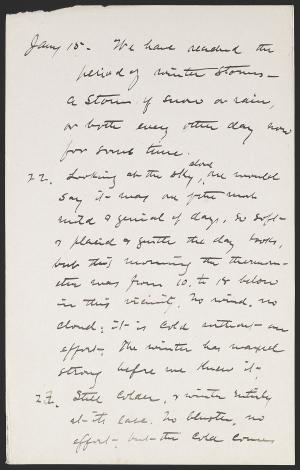 Jany 15 - We have reached the
period of winter storms -
a storm of snow or rain,
or both every other day now
for some time.
22. Looking at the sky, alone one would
say it was one of the most
mild & genial of days, so soft
& placid & gentle the day looks,
but this morning the thermom-
eter was from 10. to 18 below
in this vicinity. No wind, no
cloud; it is cold without an
effort. The winter has waxed
strong before we knew it.
23. Still colder, & winter entirely
at its ease. No bluster, no
effort, but the cold comes